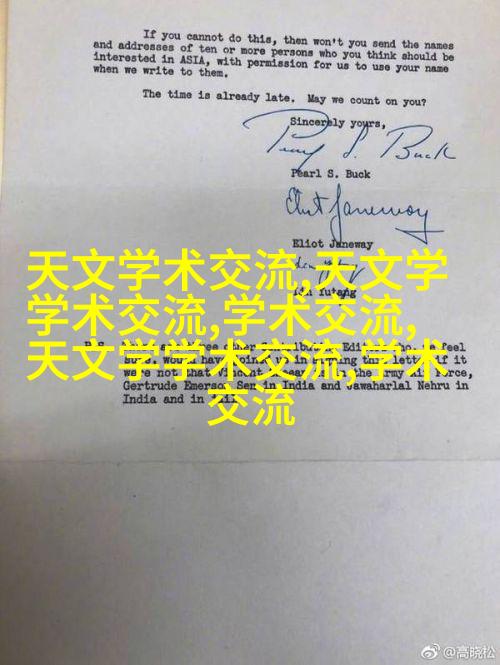 If you cannot do this, then won't you send the names
and addresses of ten or more persons who you think should be
interested in ASIA, with permission for us to use your name
when we write to them.
The time is already late. May we count on you?
Sincerely yours,
Pearl S. Buck
Pearl S. Buck
Eliot Janeway
Eliot Janeway
Lin Yutang
天文学术交流,天文学
学术交流,学术交流,
天文学学术交流,学术
交流
P.S.
other
Edi
feel
would have
in
this letter if it
were not that Vincent Sheean
in the Army Air Force,
Gertrude Emerson Sen in India and Jawaharlal Nehru in
India and in jail.
@高晓松